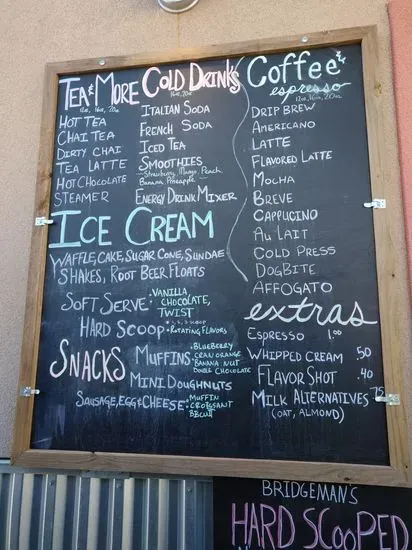 TEA & MORE
12oz, 16oz, 20oz
HOT TEA
CHAI TEA
DIRTY CHAI
TEA LATTE
HOT CHOCOLATE
STEAMER
COLD DRINKS
16oz, 20oz
ITALIAN SODA
FRENCH SODA
ICED TEA
SMOOTHIES
- Strawberry, Mango, Peach,
Banana, Pineapple -
ENERGY DRINK MIXER
Coffee &
espresso
12oz, 16oz, 20oz
DRIP BREW
AMERICANO
LATTE
FLAVORED LATTE
MOCHA
BREVE
CAPPUCINO
AU LAIT
COLD PRESS
DOGBITE
AFFOGATO
ICE CREAM
WAFFLE, CAKE, SUGAR CONE, SUNDAE
SHAKES, ROOT BEER FLOATS
SOFT SERVE: VANILLA,
CHOCOLATE,
TWIST
HARD SCOOP • ROTATING FLAVORS
SNACKS
MUFFINS: BLUEBERRY
CRAN ORANGE
BANANA NUT
DOUBLE CHOCOLATE
MINI DOUGHNUTS
SAUSAGE, EGG & CHEESE: MUFFIN
CROISSANT
BISCUIT
extras
ESPRESSO 1.00
WHIPPED CREAM .50
FLAVOR SHOT .40
MILK ALTERNATIVES .75
(OAT, ALMOND)
BRIDGEMAN'S
HARD SCOOPED